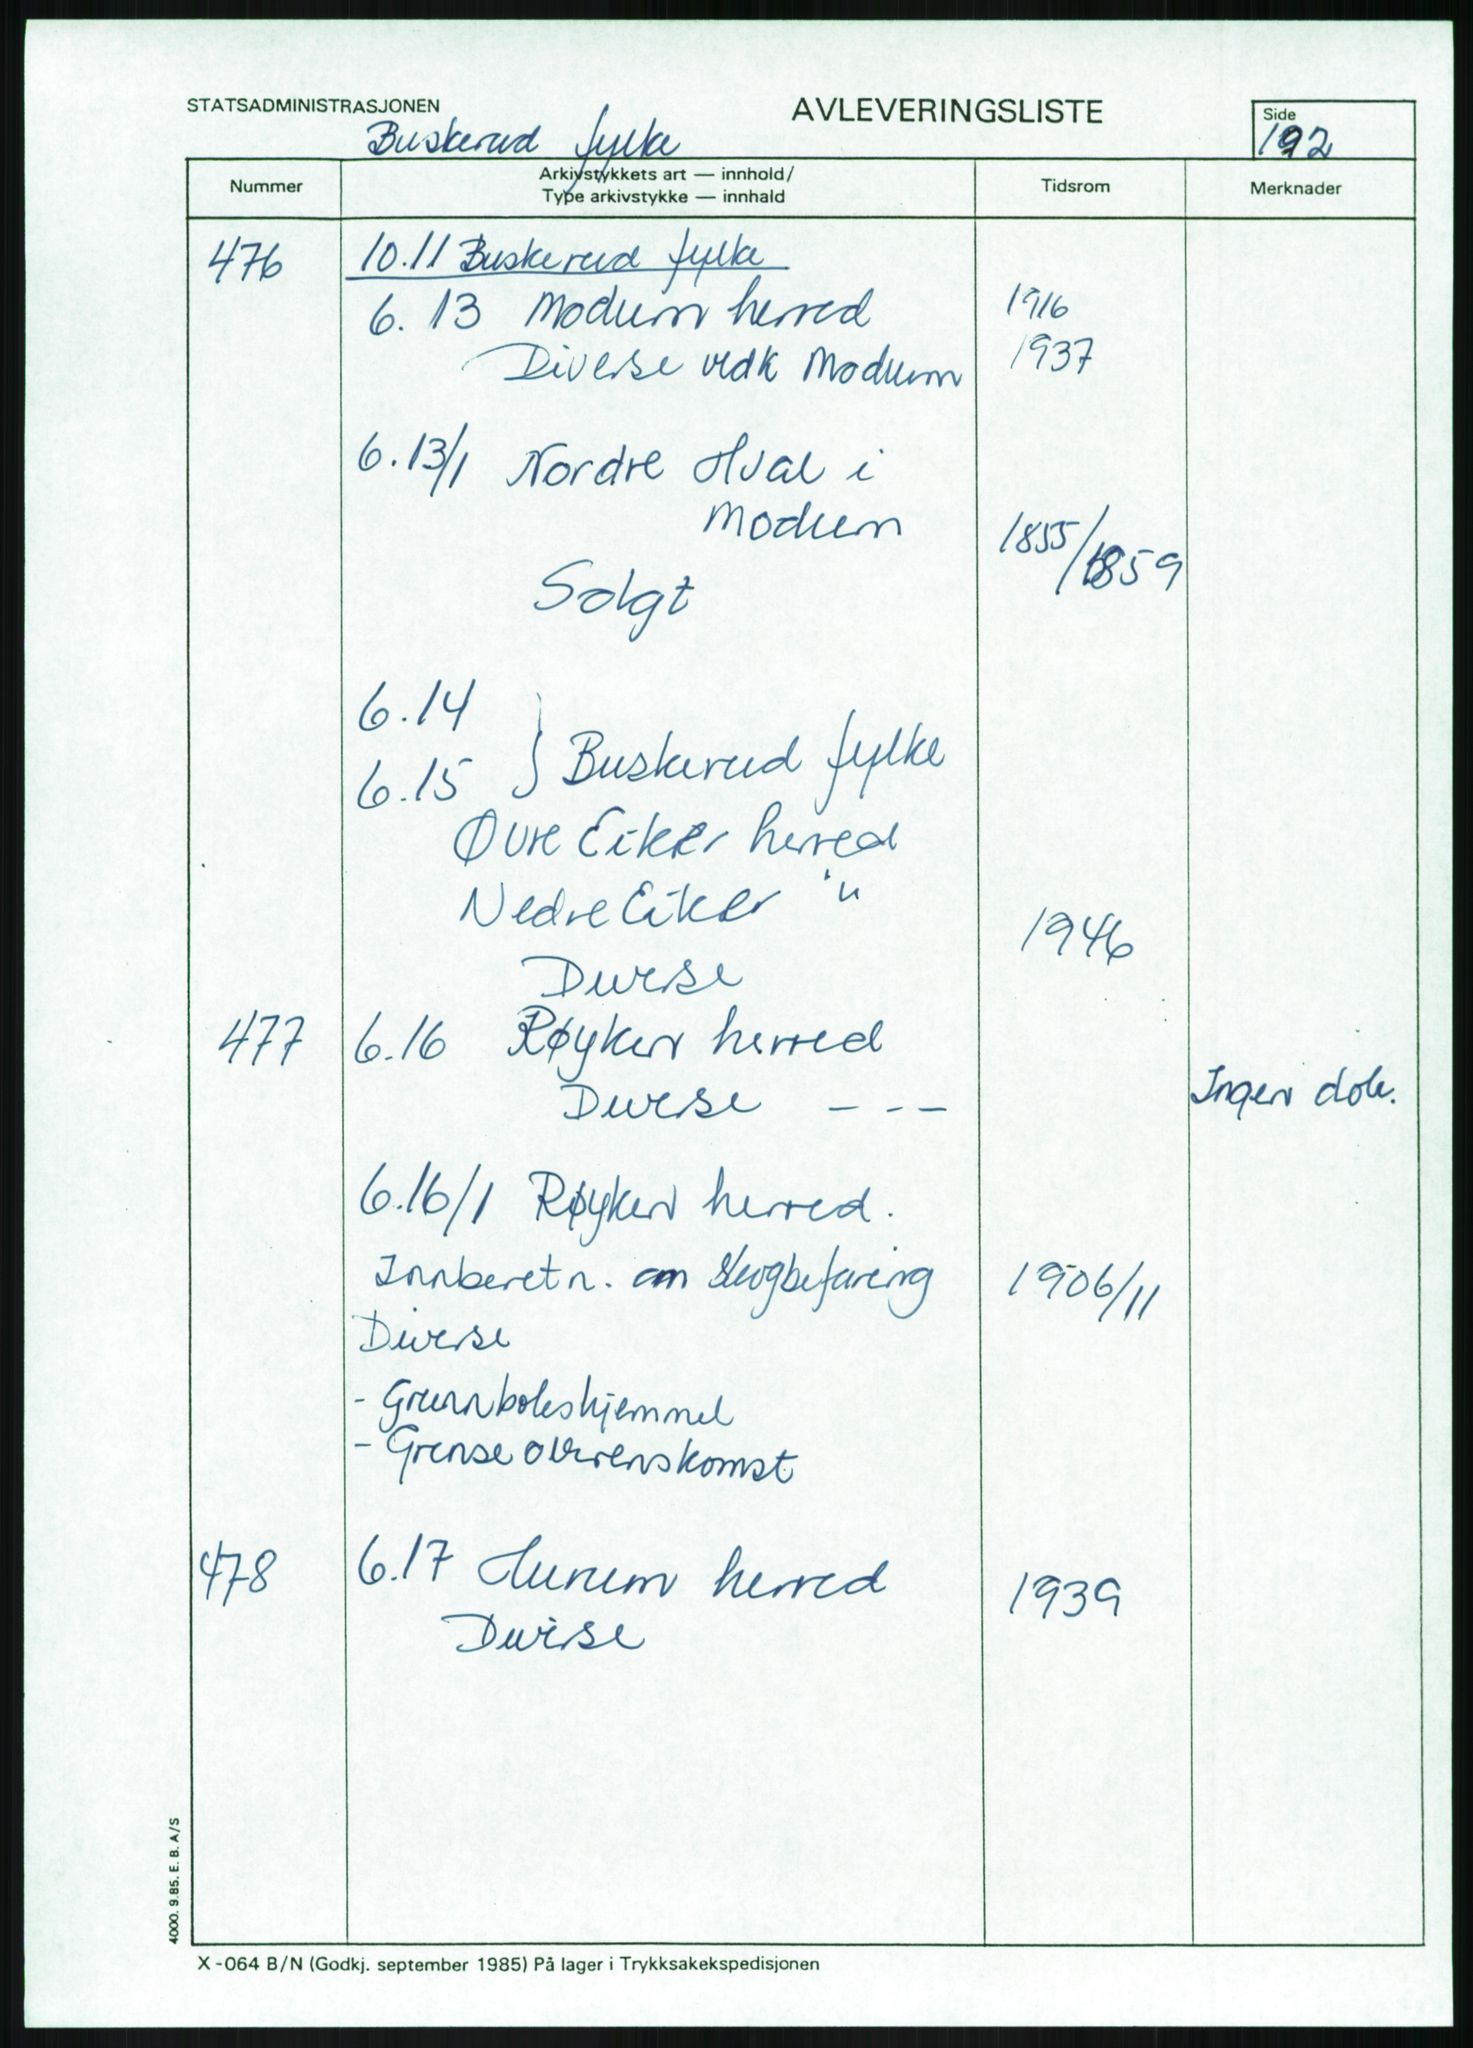 STATSADMINISTRASJONEN
AVLEVERINGSLISTE
Side
192
Buskerud fylke
Nummer
Arkivstykkets art — innhold/
Type arkivstykke — innhald
Tidsrom
Merknader
476 10.11 Buskerud fylke
6.13 Modum herred 1916
Diverse vedk Modum 1937
6.13/1 Nordre Hval i
Modum 1855/1859
Solgt
6.14
6.15 } Buskerud fylke
Øvre Eiker herred
Nedre Eiker " 1946
Diverse
477 6.16 Røyken herred
Diverse - - - Ingen dok.
6.16/1 Røyken herred.
Innberetn. om skogbefaring 1906/11
Diverse
- Grunnbokshjemmel
- Grenseoverenskomst
478 6.17 Hurum herred 1939
Diverse
4000. 9.85. E. B. A/S
X-064 B/N (Godkj. september 1985) På lager i Trykksakekspedisjonen